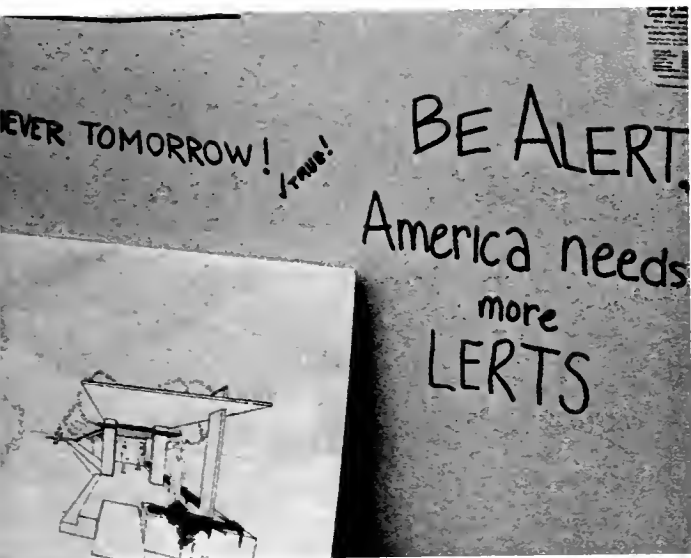 TOMORROW!
√TRUE!
BE ALERT.
America needs
more
LERTS